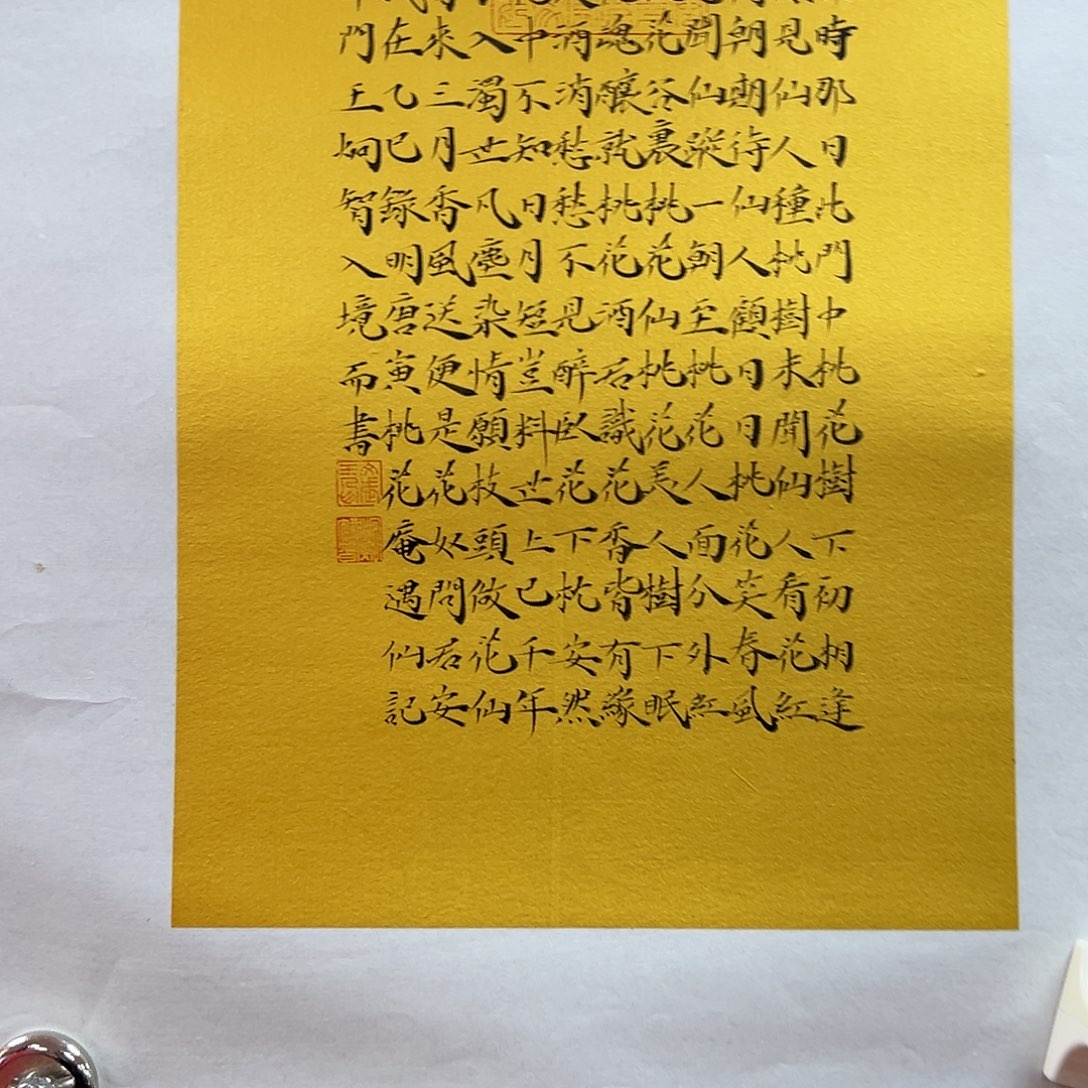 時那日此門中桃花樹下初相逢
見仙人種桃樹未聞仙人看花紅
朝期待仙人顧日日桃花笑春風
聞仙蹤一朝至桃花人面分外紅
花谷裏桃花仙桃花美人樹下眠
魂釀就桃花酒君識花香皆有緣
酒消愁愁不見醉臥花下枕安然
中不知日月短豈料世上已千年
入濁世凡塵染情願枝頭做花仙
來三月香風送便是花奴問君安
在乙巳錄明唐寅桃花庵遇仙記
門王智入境而書